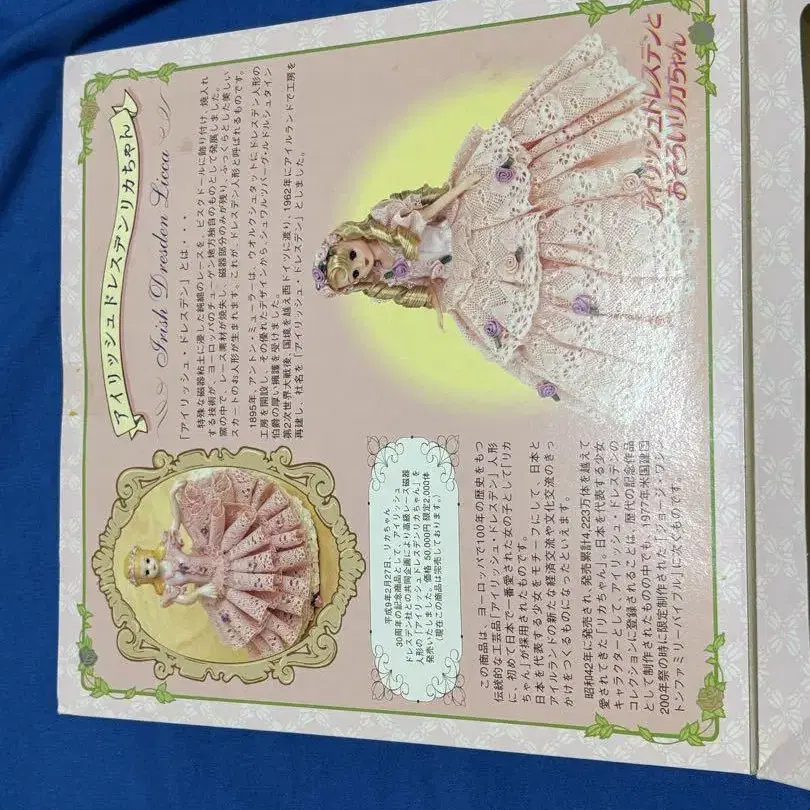 アイリッシュドレスデンリカちゃん
Irish Dresden Licca
「アイリッシュ・ドレスデン」とは・・・
特殊な磁器粘土に浸した純綿のレースを、ビスクドールに飾り付け、焼入れ
する技術が、ヨーロッパのチューゲン地方独自のものとして発展しました。
窯の中で、レース素材が焼失し、磁器部分のみが残り、ふっくらとした美しい
スカートのお人形が生まれます。これが、ドレスデン人形と呼ばれるものです。
1895年、アントン・ミューラーは、ウオルクシュタットにドレスデン人形の
工房を開設し、その優れたデザインから、シュワルツバーグ・ルドルシュタイン
伯爵の厚い擁護を受けました。
第2次世界大戦後、国境を越え西ドイツに渡り、1962年にアイルランドで工房を
再建し、社名を「アイリッシュ・ドレスデン」としました。
平成9年2月27日、リカちゃん
30周年の記念商品として、アイリッシュ
ドレスデン社との共同企画により高級レース磁器
人形の「アイリッシュドレスデンリカちゃん」を
発売いたしました。価格 50,000円 限定2,000体
(現在この商品は完売しております。)
この商品は、ヨーロッパで100年の歴史をもつ
伝統的な工芸品「アイリッシュ・ドレスデン」人形
に、初めて日本で一番愛された女の子として「リカ
ちゃん」が採用されたものです。
日本を代表する少女をモチーフにして、日本と
アイルランドの新たな経済交流や文化交流のきっ
かけをつくるものになったといえます。
昭和42年に発売され、発売累計4,223万体を越えて
愛されてきた「リカちゃん」。日本を代表する少女
キャラクターとして「アイリッシュ・ドレスデン」の
コレクションに登録されることは、歴代の記念作品
として制作されたものの中でも、1977年米国建国
200年祭の時に限定制作された「ジョージ・ワシン
トンファミリーバイブル」に次ぐものです。
アイリッシュドレスデンと
おそろいリカちゃん